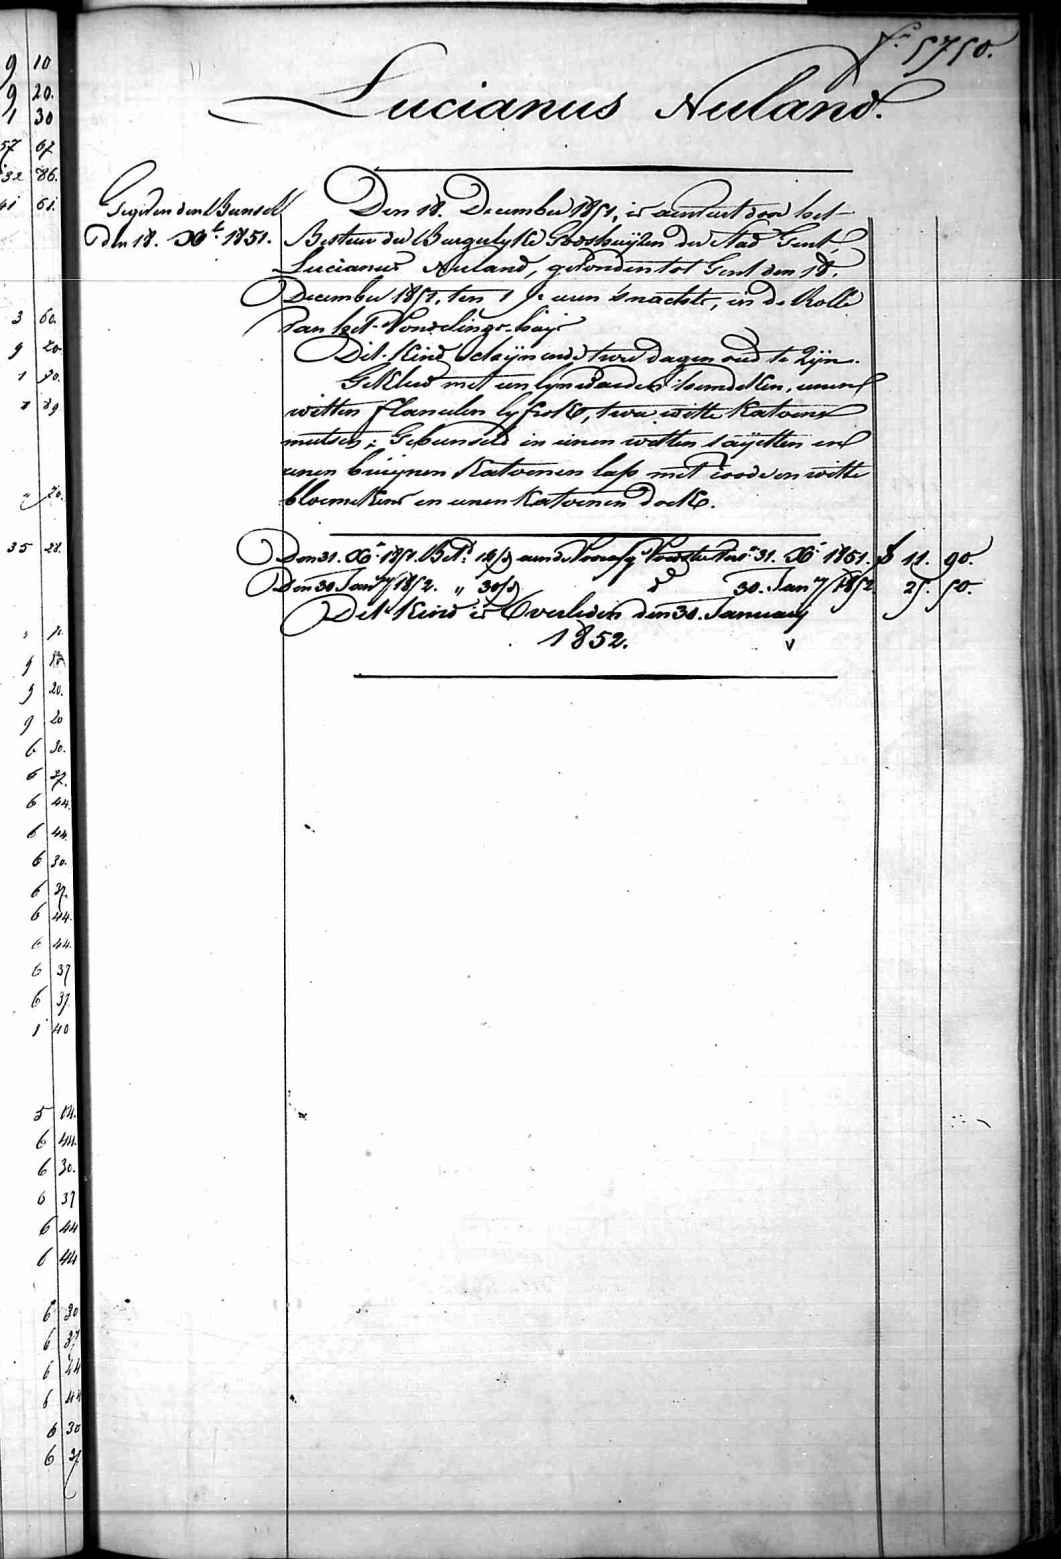 f.º 5750.
Lucianus Nuland.
Gegeven den Bunsel
den 18. Xb.e 1851.
Den 18. December 1851, is aenveert door het
Bestuer der Burgerlyke Godshuyzen der Stad Gent,
Lucianus Nuland, gevonden tot Gent den 18.
December 1851, ten 1 1/2 uren 's nachts, in de Rolle
van het Vondelings-huys
Dit Kind schijnende twee dagen oud te Zijn.
Gekleed met een lynwaeden hemdeken, eenen
witten flanelen lyfrok, twee witte Katoene
mutsen; Gebunseld in eenen witten sayetten en
eenen bruynen Katoenen lap met roode en witte
bloemekens en eenen Katoenen doek.
Den 31. Xb.e 1851. Bet.d 14/d aen de Voorsz. 31. Xb.e 1851. f 11. 90.
Den 30 Jan.ry 1852. „ 30/d d.o 30. Jan.ry 1852. 25. 50.
Dit Kind is Overleden den 30. January
1852. v
9 10
9 20.
1 30
57 92
32 86.
41 61.
3 60.
9 20
1 30.
20.
35 28.
9 20.
9 20
6 30.
6 37.
6 44.
6 44.
6 30.
6 37.
6 44.
6 44.
6 37
6 37
1 40
5 14.
6 44.
6 30.
6 37
6 44
6 44
6 30
6 37
6 44
6 44
6 30
6 37